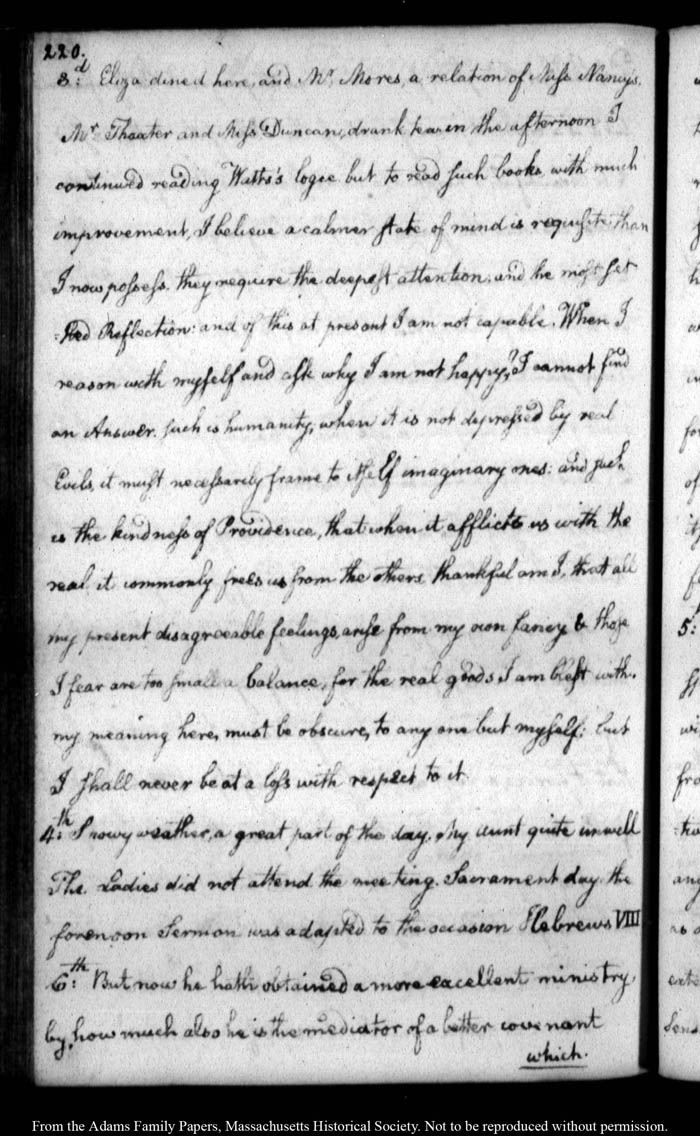 220.
3.d Eliza dined here, and Mr. Mores, a relation of Miss Nancy's.
Mr Thaxter and Miss Duncan, drank tea in the afternoon I
continued reading Watts's logic but to read such books, with much
improvement, I believe a calmer state of mind is requisite than
I now possess. they require the deepest attention, and the most set
-tled Reflection: and of this at present I am not capable. When I
reason with myself and ask why I am not happy? I cannot find
an Answer. such is humanity; when it is not depressed by real
Evils, it must necessarily frame to itself imaginary ones: and such
is the kindness of Providence, that when it afflicts us with the
real it commonly frees us from the others. thankful am I, that all
my present disagreeable feelings, arise from my own fancy & those
I fear are too small a balance, for the real goods I am blest with.
my meaning here, must be obscure, to any one but myself: but
I shall never be at a loss with respect to it.
4.th Snowy weather, a great part of the day. My aunt quite unwell
The Ladies did not attend the meeting. Sacrament day. the
forenoon Sermon was adapted to the occasion Hebrews VIII
6.th But now he hath obtained a more excellent ministry,
by, how much also he is the mediator of a better covenant
which.
5.
From the Adams Family Papers, Massachusetts Historical Society. Not to be reproduced without permission.